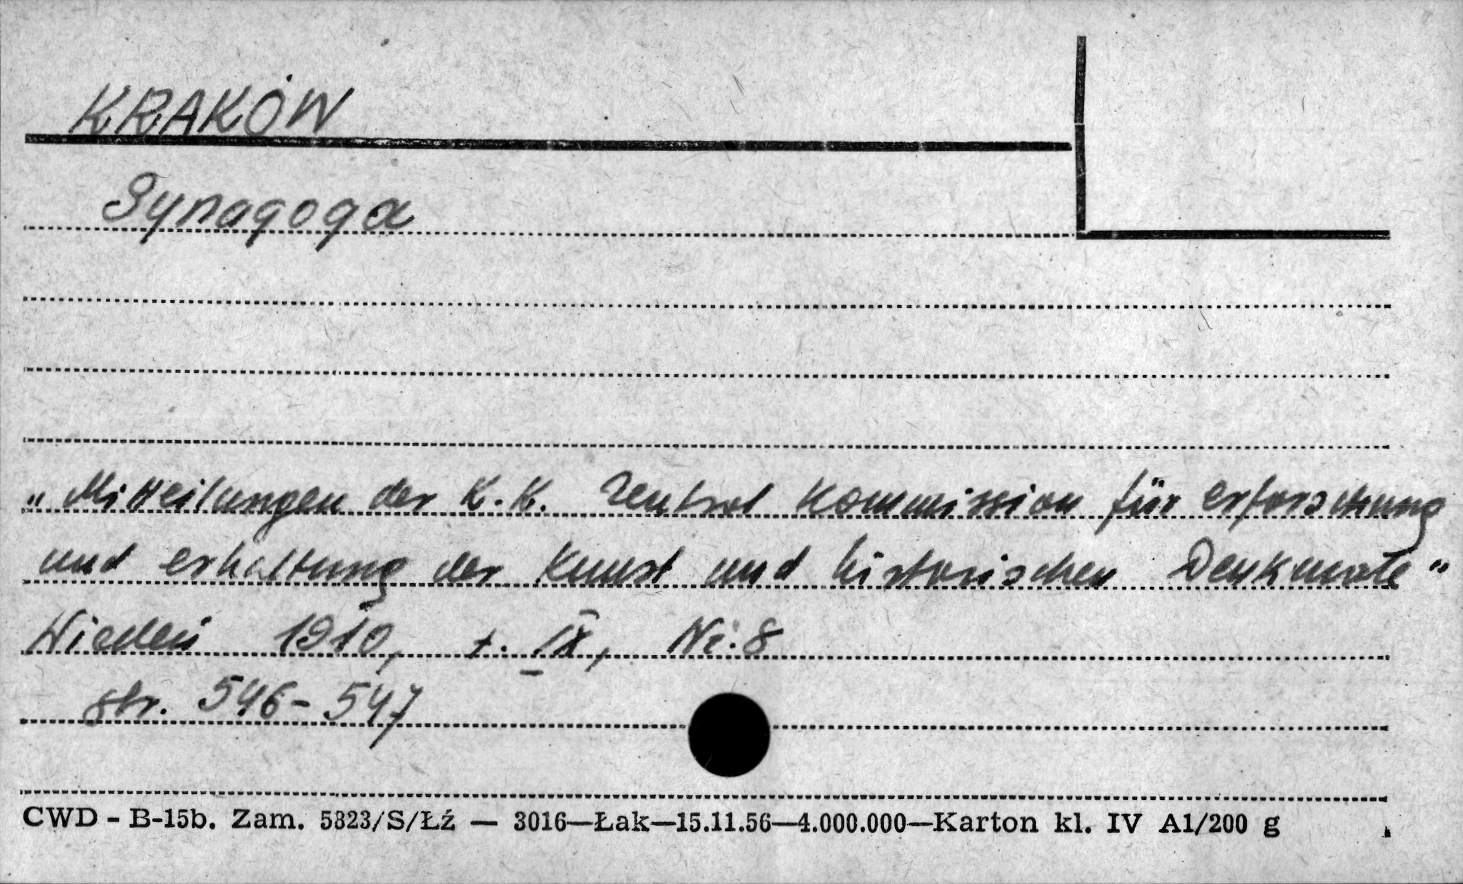 KRAKÓW
Synagoga
„Mitteilungen der K.K. Zentral Kommission für erforschung
und erhaltung der Kunst und historischen Denkmale"
Wiedeń 1910, t. IX, Nr. 8
str. 546-547
CWD - B-15b. Zam. 5323/S/Łź — 3016—Łak—15.11.56—4.000.000—Karton kl. IV A1/200 g